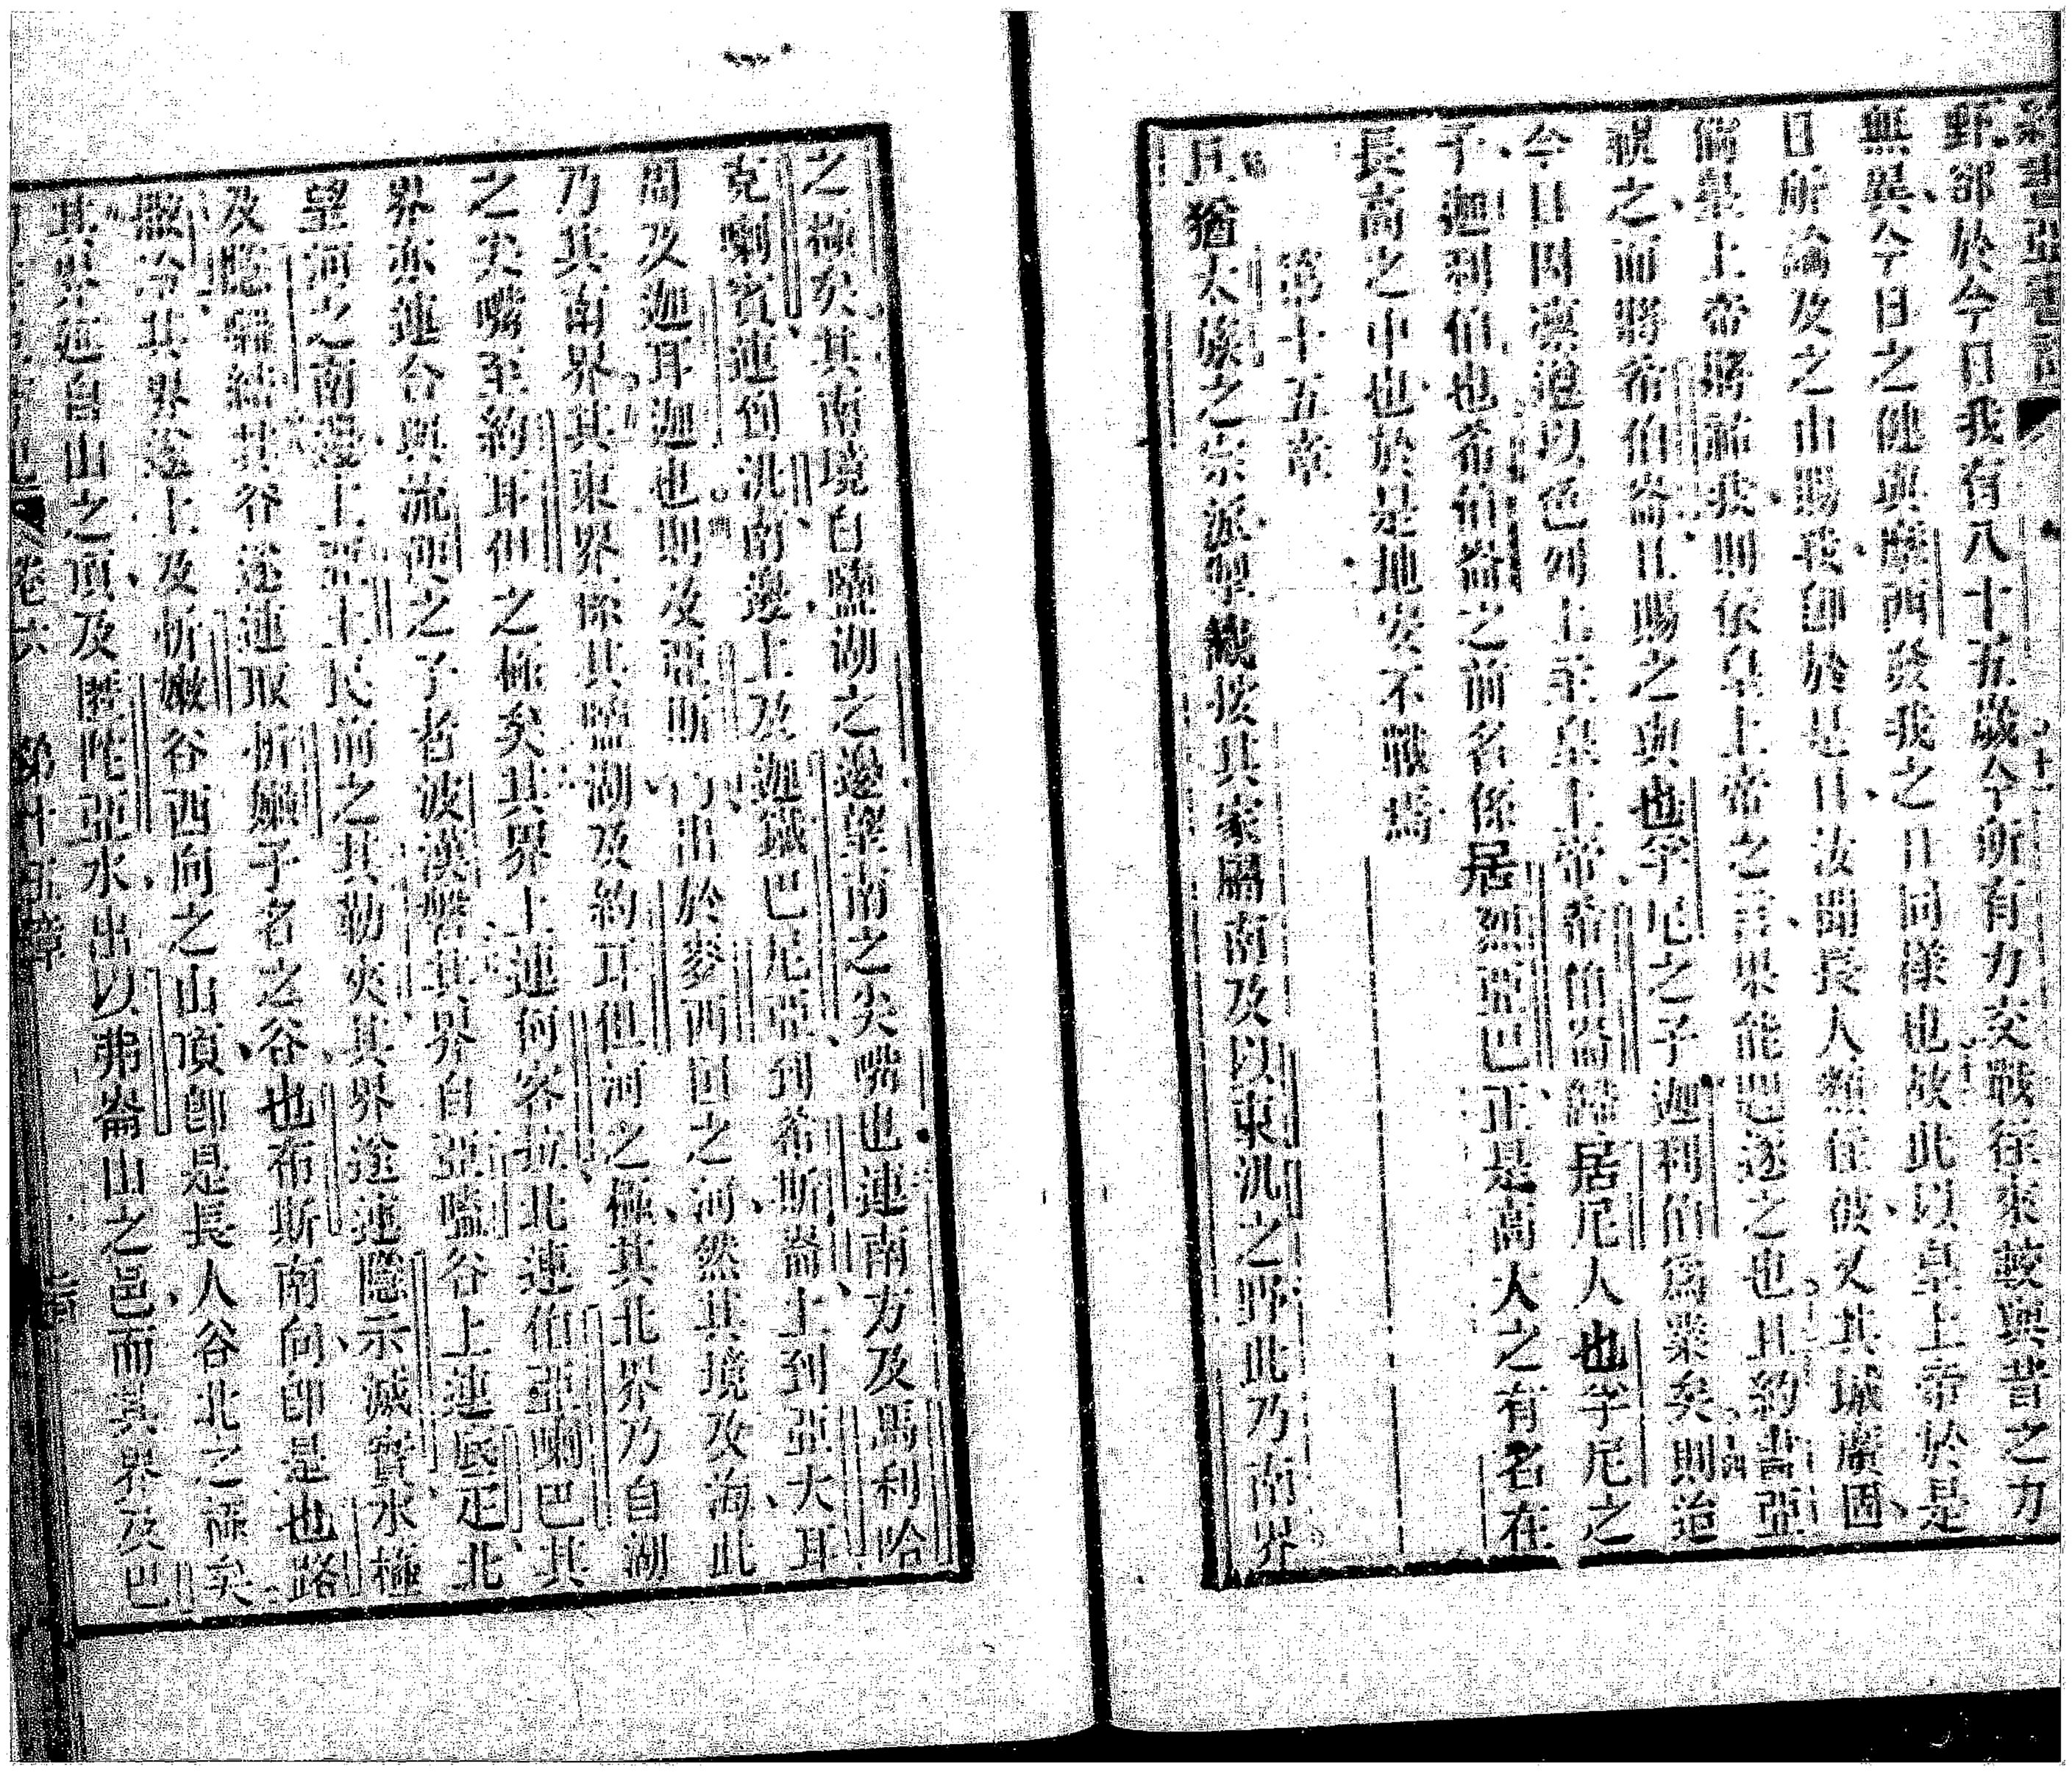 野郤於今日我有八十五歲今所有力交戰往來較與昔之力
無異今日之健與摩西發我之日同樣也故此以皇上帝於是
日所論及之山賜我卽於是日汝聞長人類住彼又其城廣固
倘皇上帝將祐我則依皇上帝之言果能趕逐之也且約書亞
祝之而將希伯崙且賜之與也孚尼之子迦利伯爲業矣則迨
今日因凛遵以色列上主皇上帝希伯崙歸居尼人也孚尼之
子迦利伯也希伯崙之前名係居烈亞巴正是高人之有名在
長高之中也於是地安不戰焉
第十五章
且猶大族之宗派掣籤按其家屬南及以東汎之野此乃南界
之極矣其南境自鹽湖之邊望南之尖嘴也連南方及馬利哈
克喇賓連到汎南邊上及迦鐵巴尼亞到希斯崙上到亞大耳
周及迦耳迦也則及亞斯 出於麥西國之河然其境及海此
乃其南界其東界係其鹽湖及約耳但河之極其北界乃自湖
之尖嘴至約耳但之極矣其界上連何客拉北連伯亞喇巴其
界亦連合與流便之子者波漢磐其界自亞嗑谷上連底疋北
望河之南邊上 土民前之其勒夾其界途連隱示滅實水極
及 羅結其谷途連取忻嬾子名之谷也布斯南向卽是也路
撒冷其界途上及忻嫩谷西向之山頂卽是長人谷北之極矣
其界延自山之頂及匿陀亞水出以弗崙山之邑而其界及巴
卷六 第十五章